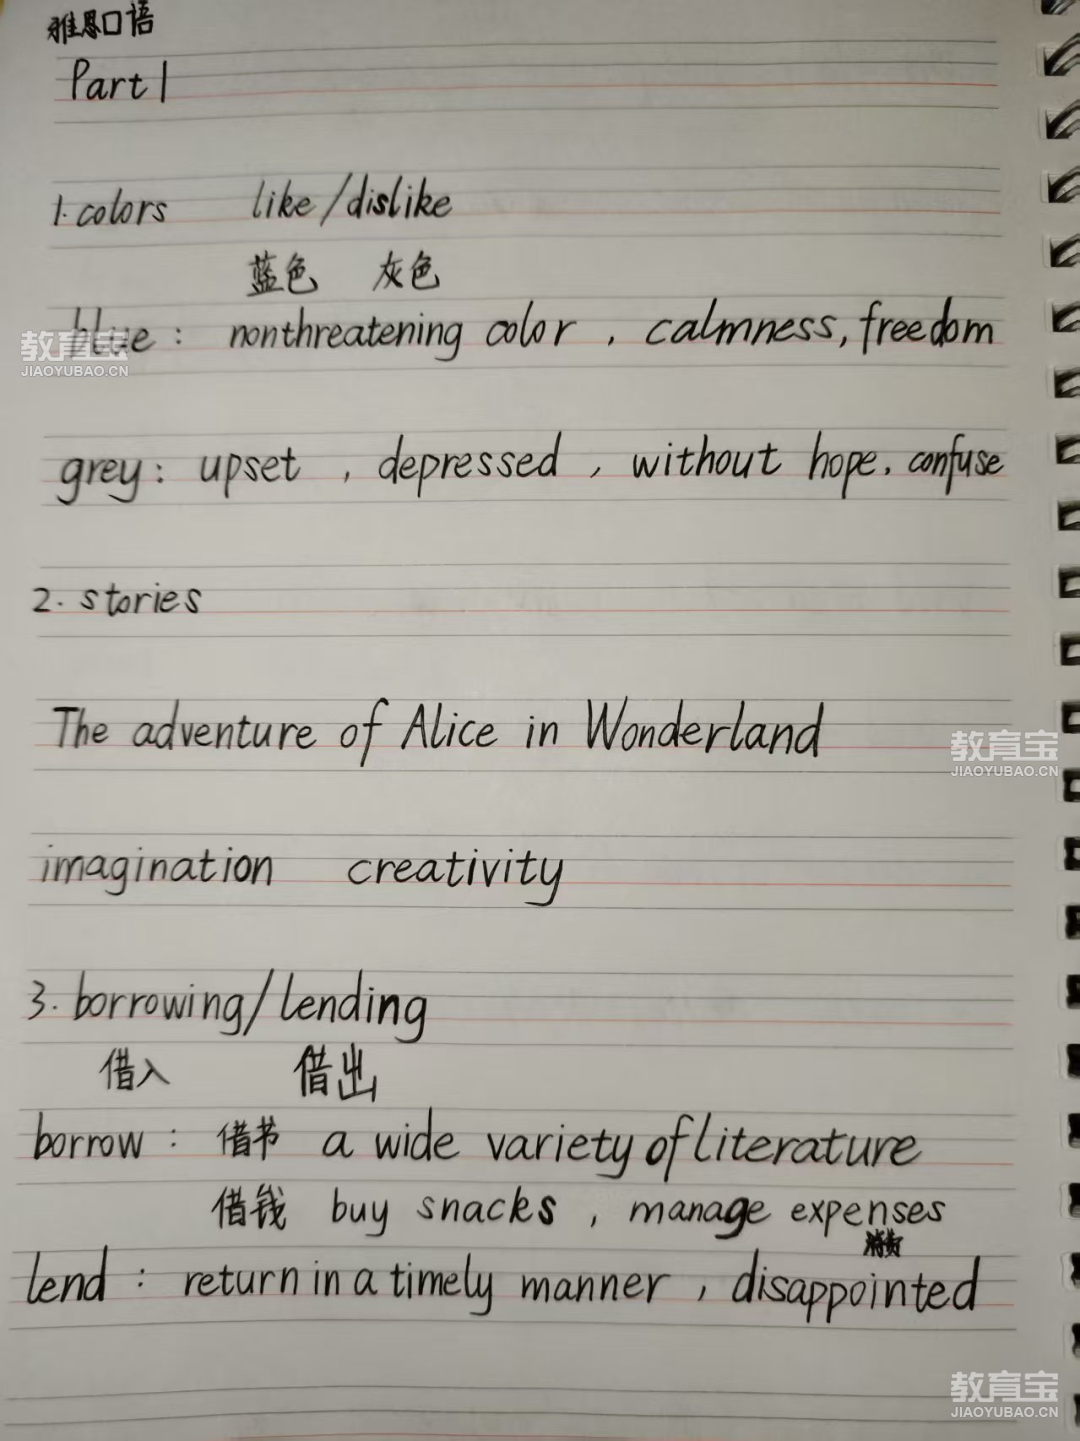 雅思口语
Part 1
1. colors like/dislike
蓝色 灰色
blue: nonthreatening color, calmness, freedom
教育宝
JIAOYUBAO.CN
grey: upset, depressed, without hope, confuse
2. stories
The adventure of Alice in Wonderland
教育宝
JIAOYUBAO.CN
imagination creativity
3. borrowing/lending
借入 借出
borrow: 借书 a wide variety of literature
借钱 buy snacks, manage expenses
消费
lend: return in a timely manner, disappointed
教育宝
JIAOYUBAO.CN